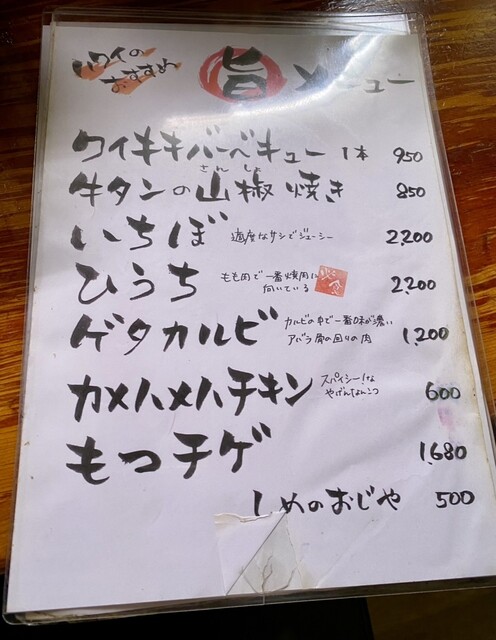 ハワイの
おすすめ
旨メニュー
ワイキキバーベキュー 1本 950
さんしょ
牛タンの山椒焼き 850
いちぼ 適度なサシでジューシー 2,200
ひうち もも肉で一番焼肉に
向いている 2,200
ゲタカルビ カルビの中で一番味が濃い
アバラ骨の回りの肉 1,200
カメハメハチキン スパイシー!な
やげんなんこつ 600
もつチゲ 1,680
しめのおじや 500